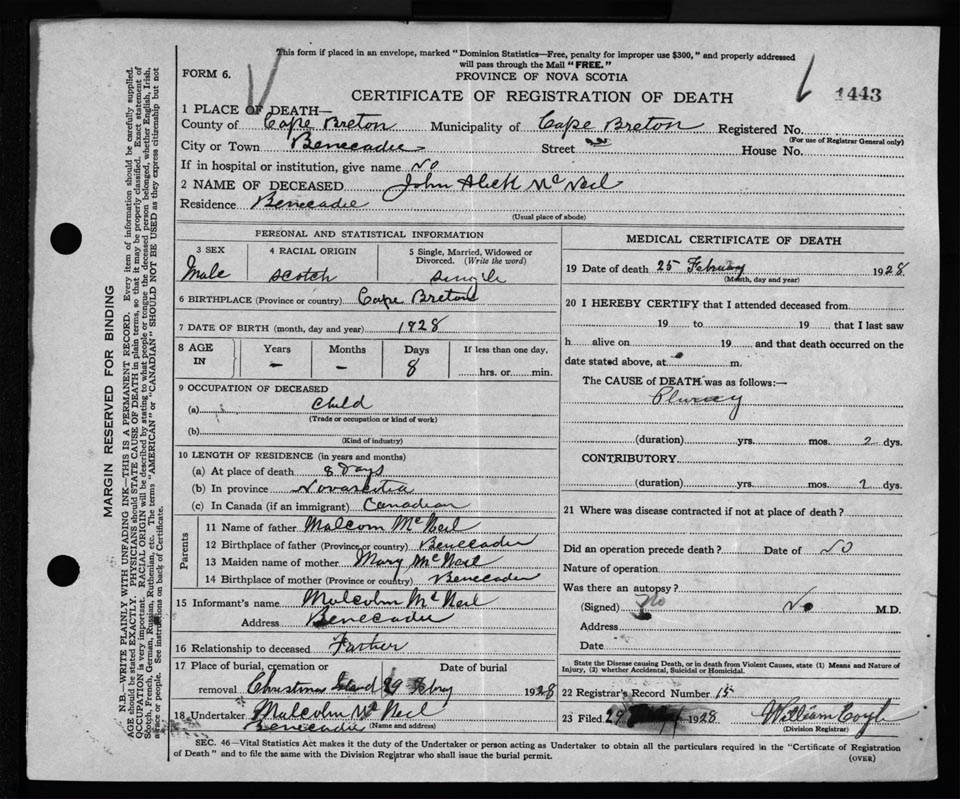 This form if placed in an envelope, marked "Dominion Statistics—Free, penalty for improper use $300," and properly addressed
will pass through the Mail "FREE."
FORM 6.
PROVINCE OF NOVA SCOTIA
CERTIFICATE OF REGISTRATION OF DEATH
1443
1 PLACE OF DEATH—
County of Cape Breton Municipality of Cape Breton Registered No.
(For use of Registrar General only)
City or Town Benecadie Street House No.
If in hospital or institution, give name No
2 NAME OF DECEASED John Alick McNeil
Residence Benecadie
(Usual place of abode)
PERSONAL AND STATISTICAL INFORMATION
3 SEX 4 RACIAL ORIGIN 5 Single, Married, Widowed or Divorced. (Write the word)
Male Scotch Single
6 BIRTHPLACE (Province or country) Cape Breton
7 DATE OF BIRTH (month, day and year) 1928
8 AGE IN Years Months Days If less than one day,
— — 8 hrs. or min.
9 OCCUPATION OF DECEASED
(a) Child
(Trade or occupation or kind of work)
(b)
(Kind of industry)
10 LENGTH OF RESIDENCE (in years and months)
(a) At place of death 8 Days
(b) In province Novascotia
(c) In Canada (if an immigrant) Canadian
Parents
11 Name of father Malcom McNeil
12 Birthplace of father (Province or country) Benecadie
13 Maiden name of mother Mary McNeil
14 Birthplace of mother (Province or country) Benecadie
15 Informant's name Malcolm McNeil
Address Benecadie
16 Relationship to deceased Farther
17 Place of burial, cremation or Date of burial
removal Christmas Island 29 1928
18 Undertaker Malcolm McNeil
Benecadie (Name and address)
MEDICAL CERTIFICATE OF DEATH
19 Date of death 25 February 1928
(Month, day and year)
20 I HEREBY CERTIFY that I attended deceased from
19 to 19 that I last saw
h alive on 19 and that death occurred on the
date stated above, at m.
The CAUSE of DEATH was as follows:—
(duration) yrs. mos. 2 dys.
CONTRIBUTORY
(duration) yrs. mos. 2 dys.
21 Where was disease contracted if not at place of death?
Did an operation precede death? Date of No
Nature of operation
Was there an autopsy?
(Signed) No No M.D.
Address
Date
State the Disease causing Death, or in death from Violent Causes, state (1) Means and Nature of
Injury, (2) whether Accidental, Suicidal or Homicidal.
22 Registrar's Record Number 15
23 Filed 29 1928 William Coyle
(Division Registrar)
SEC. 46—Vital Statistics Act makes it the duty of the Undertaker or person acting as Undertaker to obtain all the particulars required in the "Certificate of Registration
of Death" and to file the same with the Division Registrar who shall issue the burial permit.
(OVER)
MARGIN RESERVED FOR BINDING
N.B.—WRITE PLAINLY WITH UNFADING INK—THIS IS A PERMANENT RECORD. Every item of information should be carefully supplied.
AGE should be stated EXACTLY. PHYSICIANS should STATE CAUSE OF DEATH in plain terms, so that it may be properly classified. Exact statement of
OCCUPATION is very important. RACIAL ORIGIN will be described by stating to what people or tongue the deceased person belonged, whether English, Irish,
Scotch, French, German, Russian, Ruthenian, etc. The terms "AMERICAN" or "CANADIAN" SHOULD NOT BE USED as they express citizenship but not
a race or people. See instructions on back of Certificate.